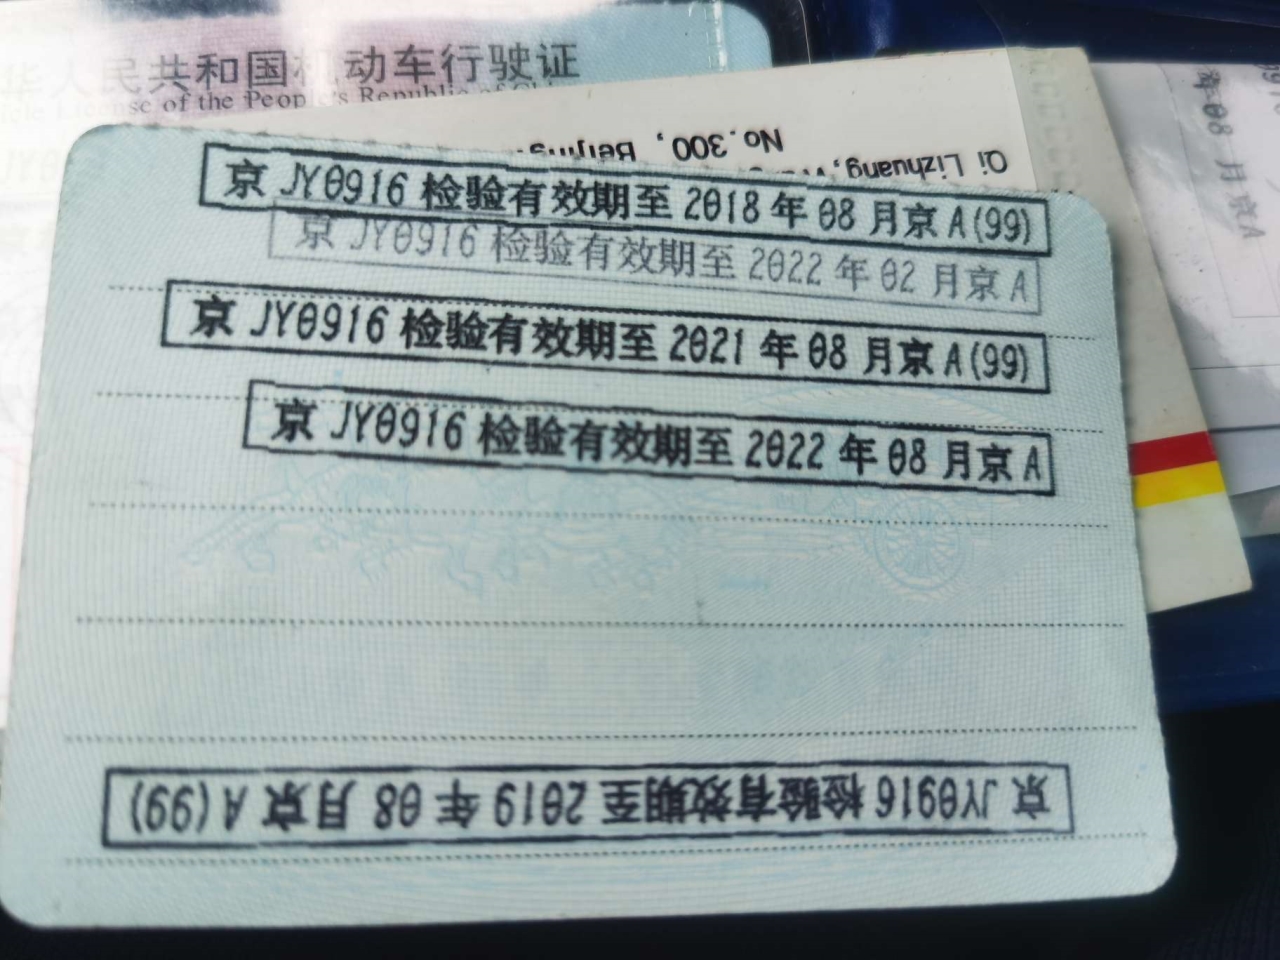 华人民共和国机动车行驶证
icle License of the People's Republic of Chi
No.300, Beijing
Qi Lizhuang,
京 JY0916 检验有效期至 2018 年 08 月京 A(99)
京 JY0916 检验有效期至 2022 年 02 月京 A
京 JY0916 检验有效期至 2021 年 08 月京 A(99)
京 JY0916 检验有效期至 2022 年 08 月京 A
京 JY0916 检验有效期至 2019 年 08 月京 A(99)
年 08 月京A